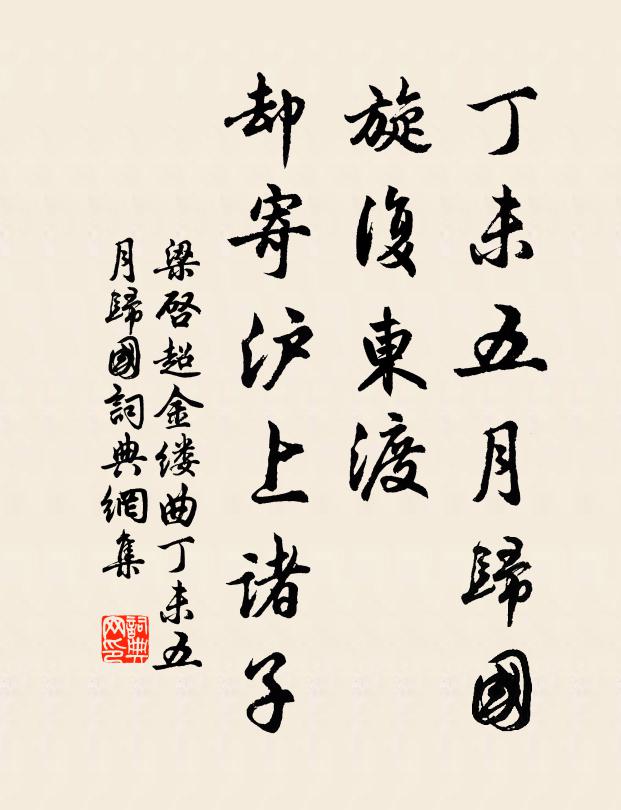 丁未五月歸國
旋復東渡
却寄沪上諸子
梁启超金缕曲丁未五
月歸國詞典網集
詞典
网印